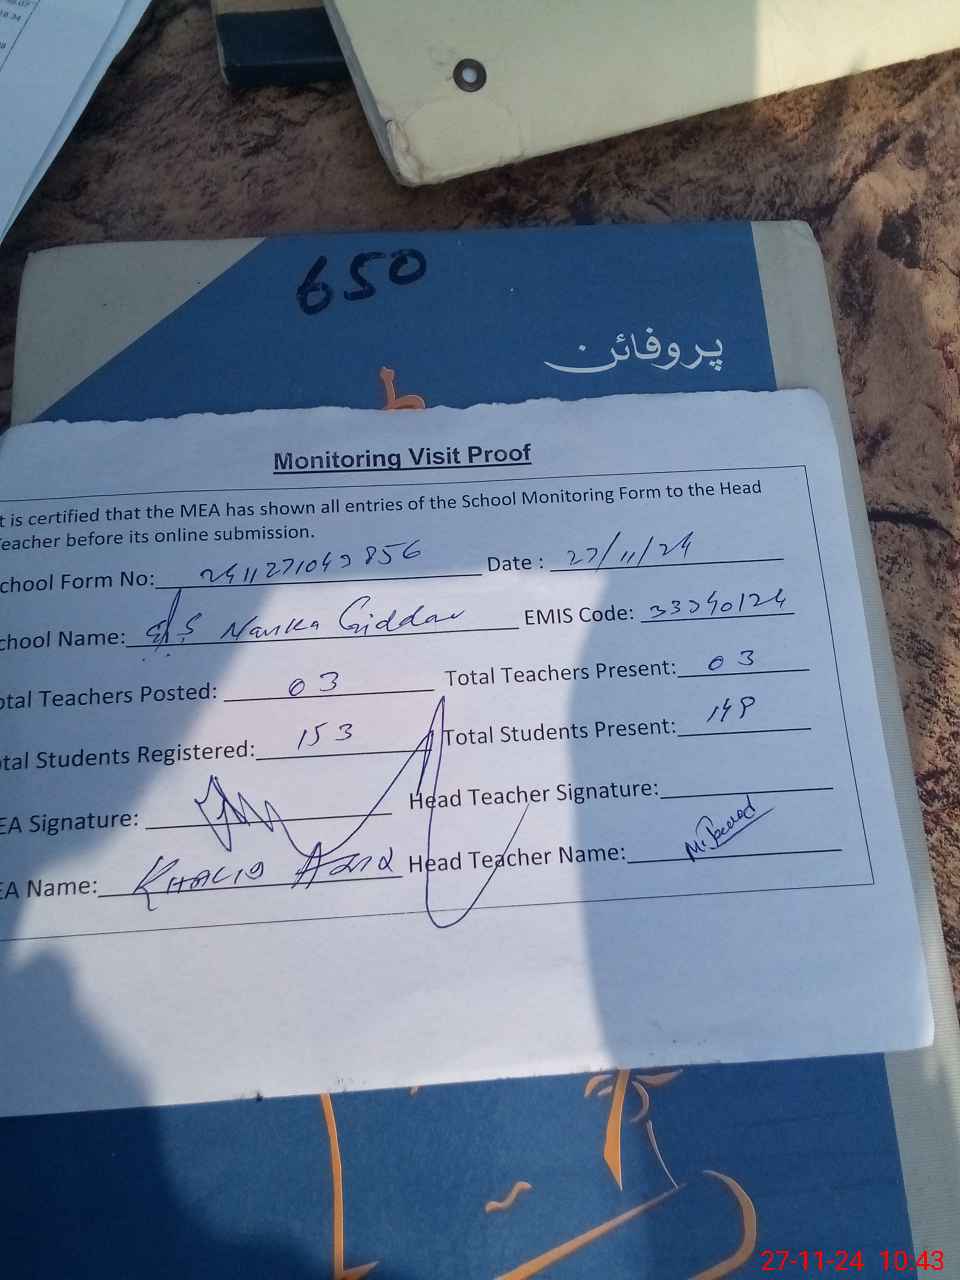 650
پروفائن
Monitoring Visit Proof
t is certified that the MEA has shown all entries of the School Monitoring Form to the Head
eacher before its online submission.
chool Form No: Date : 27/11/24
chool Name: EMIS Code: 33240124
otal Teachers Posted: 03 Total Teachers Present: 03
tal Students Registered: 153 Total Students Present:
EA Signature: Head Teacher Signature:
EA Name: Head Teacher Name:
27-11-24 10:43